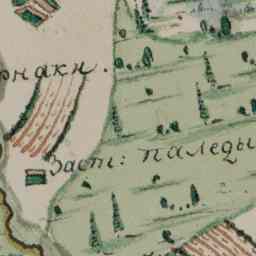 рнаки.
Заст: паледы